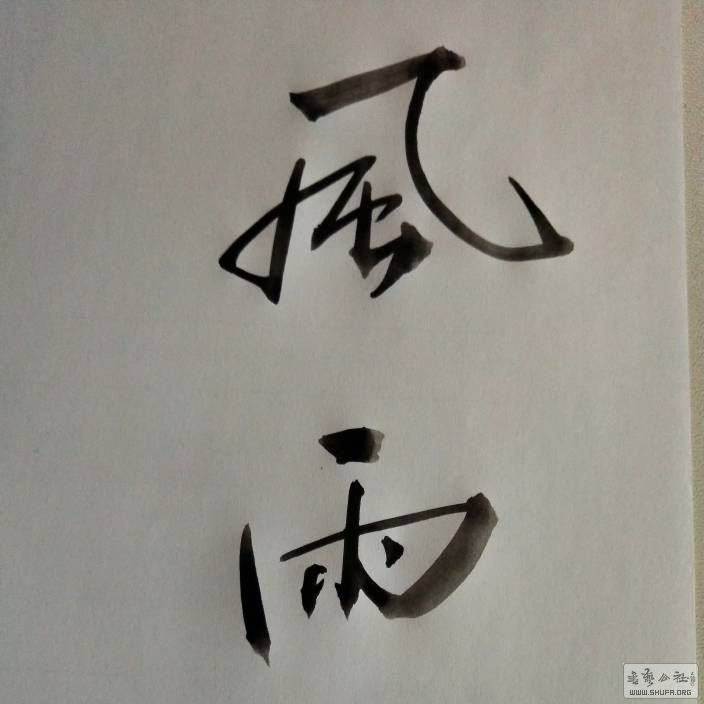 風
雨
書藝公社
WWW.SHUFA.ORG